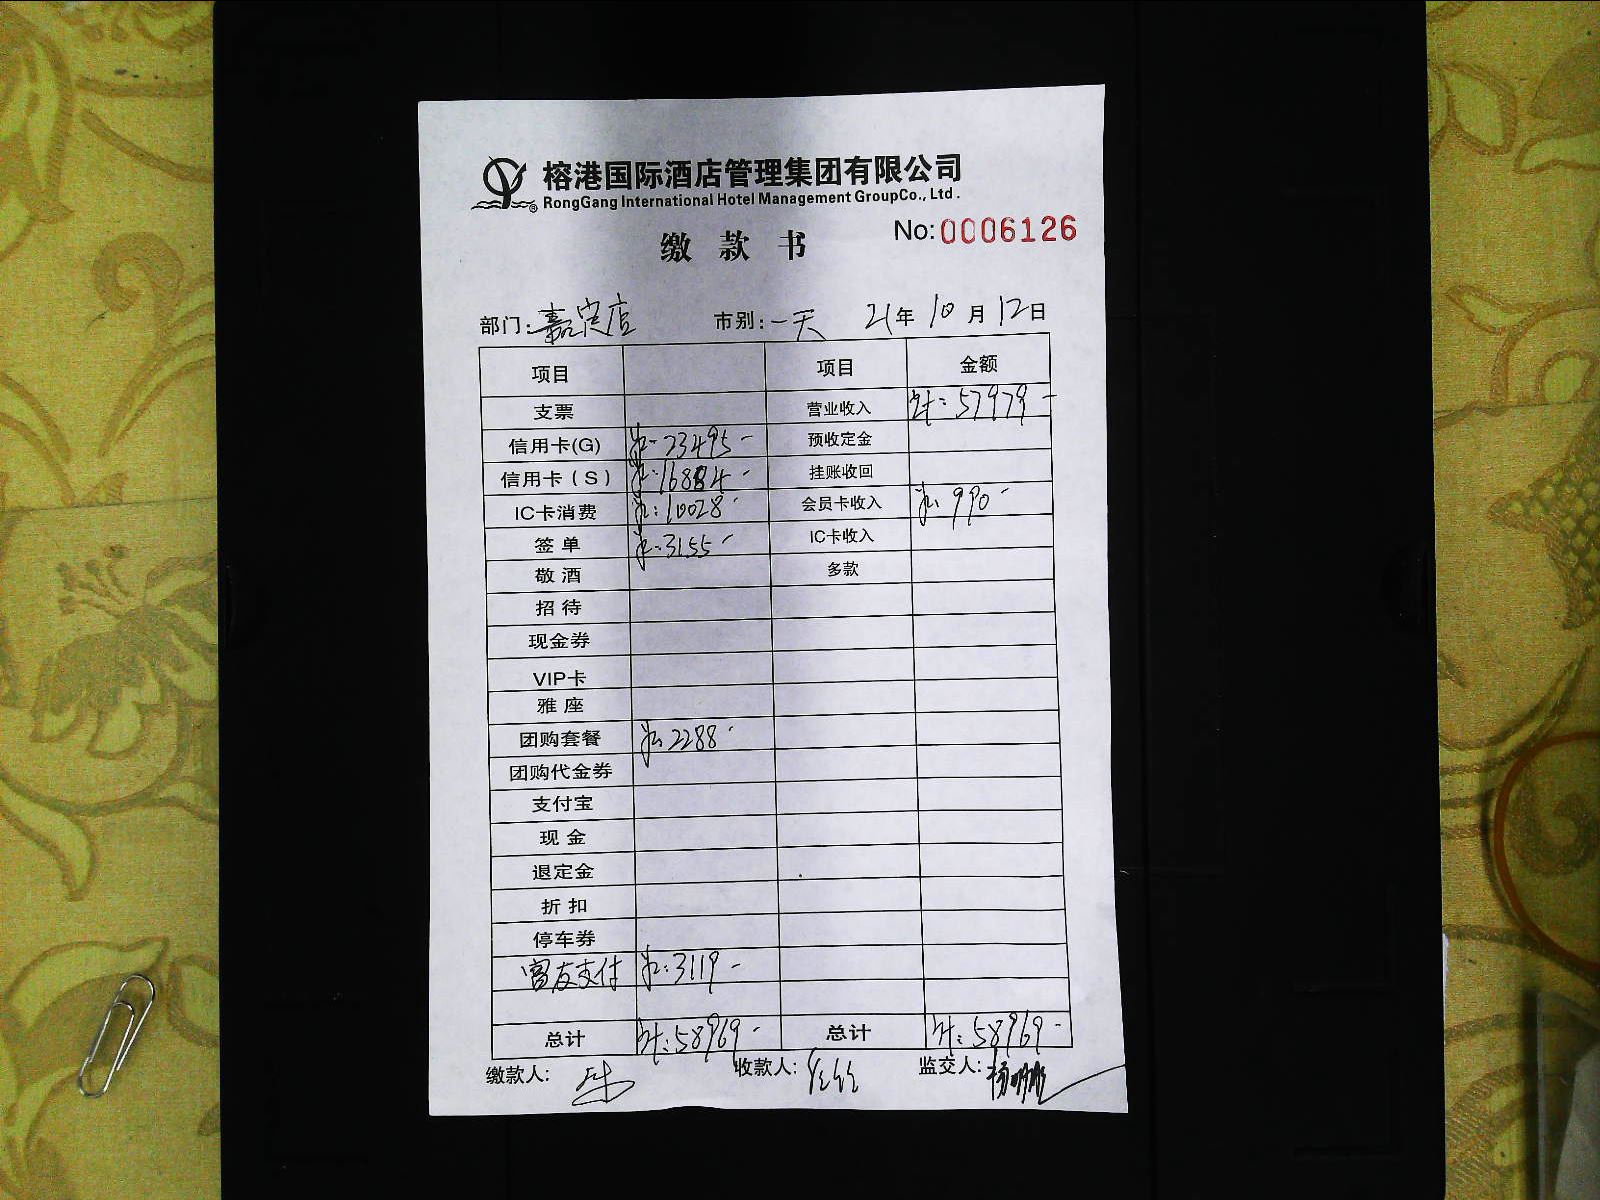 榕港国际酒店管理集团有限公司
RongGang International Hotel Management GroupCo., Ltd.
No:0006126
缴款书
部门:嘉定店 市别:一天 21年10月12日
项目 项目 金额
支票 营业收入 计:57979-
信用卡(G) 23495- 预收定金
信用卡(S) 16884- 挂账收回
IC卡消费 10028- 会员卡收入 990-
签单 3155- IC卡收入
敬酒 多款
招待
现金券
VIP卡
雅座
团购套餐 2288-
团购代金券
支付宝
现金
退定金
折扣
停车券
富友支付 3119-
总计 计:58969- 总计 计:58969-
缴款人: 收款人: 监交人: